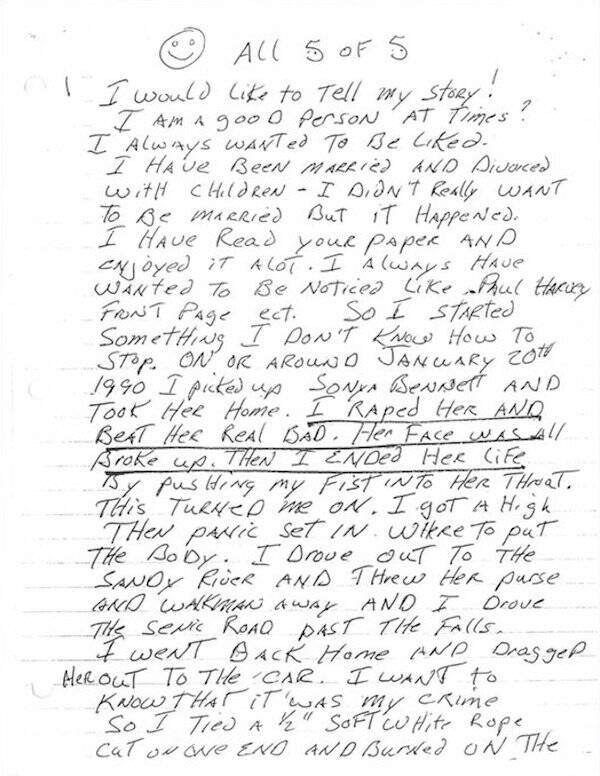 All 5 of 5
1 I would Like to Tell my story!
I AM A gooD Person AT Times?
I Always WANTed To Be Liked.
I HAve Been MARRied AND Divorced
with CHildren - I DiDN'T Really WANT
To Be MARRied BuT iT Happened.
I HAve Read your paper AND
enjoyed iT Alot. I Always HAve
WANted To Be Noticed Like Paul HARvey
Front Page ect. So I STARTed
Something I Don'T Know How To
STop. ON OR AROUND JANUARY 20th
1990 I picked up Sonya BenneTT AND
Took Her Home. I RAped Her AND
BeaT Her Real BAD. Her Face was All
Broke up. THen I ENDed Her Life
By pusHing my FisT iNTo Her THroaT.
THis TurneD me on. I goT A High
THen panic SeT IN. WHere To puT
THe BoDy. I Drove ouT To THe
SANDy River AND THrew Her purse
AND WALKMAN AwAy AND I Drove
THe Senic RoaD pAST THe FAlls.
I wenT BAck Home AND DraggeD
Her ouT To THe CAR. I WANT to
Know THAT iT was my CRime
So I Tied A 1/2" SofT White Rope
CuT on one END AND Burned oN THe